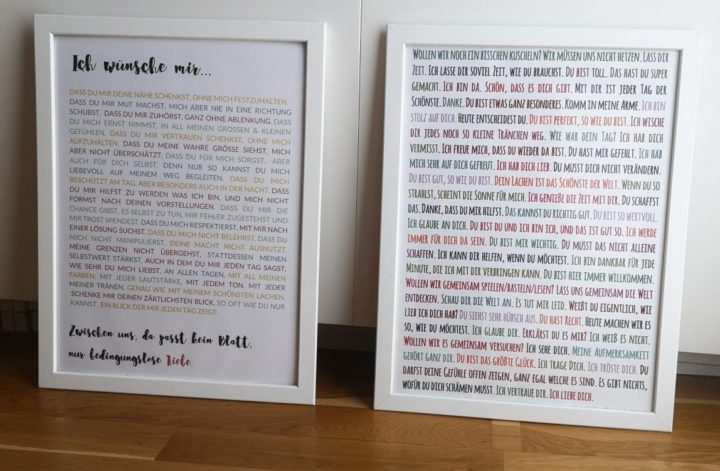 Ich wünsche mir...
DASS DU MIR DEINE NÄHE SCHENKST, OHNE MICH FESTZUHALTEN.
DASS DU MIR MUT MACHST, MICH ABER NIE IN EINE RICHTUNG
SCHUBST. DASS DU MIR ZUHÖRST, GANZ OHNE ABLENKUNG. DASS
DU MICH ERNST NIMMST, IN ALL MEINEN GROSSEN & KLEINEN
GEFÜHLEN. DASS DU MIR VERTRAUEN SCHENKST, OHNE MICH
AUFZUHALTEN. DASS DU MEINE WAHRE GRÖSSE SIEHST, MICH
ABER NICHT ÜBERSCHÄTZT. DASS DU FÜR MICH SORGST. ABER
AUCH FÜR DICH SELBST, DENN NUR SO KANNST DU MICH
LIEBEVOLL AUF MEINEM WEG BEGLEITEN. DASS DU MICH
BESCHÜTZT AM TAG, ABER BESONDERS AUCH IN DER NACHT. DASS
DU MIR HILFST ZU WERDEN WAS ICH BIN, UND MICH NICHT
FORMST NACH DEINEN VORSTELLUNGEN. DASS DU MIR DIE
CHANCE GIBST, ES SELBST ZU TUN, MIR FEHLER ZUGESTEHST UND
MIR TROST SPENDEST. DASS DU MICH RESPEKTIERST, MIT MIR NACH
EINER LÖSUNG SUCHST. DASS DU MICH NICHT BELEHRST. DASS DU
MICH NICHT MANIPULIERST, DEINE MACHT NICHT AUSNUTZT,
MEINE GRENZEN NICHT ÜBERGEHST, STATTDESSEN MEINEN
SELBSTWERT STÄRKST. AUCH IN DEM DU MIR JEDEN TAG SAGST,
WIE SEHR DU MICH LIEBST. AN ALLEN TAGEN, MIT ALL MEINEN
FARBEN, MIT JEDER LAUTSTÄRKE, MIT JEDEM TON. MIT JEDER
MEINER TRÄNEN, GENAU WIE MIT MEINEM SCHÖNSTEN LACHEN.
SCHENKE MIR DEINEN ZÄRTLICHSTEN BLICK, SO OFT WIE DU NUR
KANNST. EIN BLICK DER MIR JEDEN TAG ZEIGT:
Zwischen uns, da passt kein Blatt,
nur bedingungslose Liebe.
WOLLEN WIR NOCH EIN BISSCHEN KUSCHELN? WIR MÜSSEN UNS NICHT HETZEN. LASS DIR
ZEIT. ICH LASSE DIR SOVIEL ZEIT, WIE DU BRAUCHST. DU BIST TOLL. DAS HAST DU SUPER
GEMACHT. ICH BIN DA. SCHÖN, DASS ES DICH GIBT. MIT DIR IST JEDER TAG DER
SCHÖNSTE. DANKE. DU BIST ETWAS GANZ BESONDERES. KOMM IN MEINE ARME. ICH BIN
STOLZ AUF DICH. HEUTE ENTSCHEIDEST DU. DU BIST PERFEKT, SO WIE DU BIST. ICH WISCHE
DIR JEDES NOCH SO KLEINE TRÄNCHEN WEG. WIE WAR DEIN TAG? ICH HAB DICH
VERMISST. ICH FREUE MICH, DASS DU WIEDER DA BIST. DU HAST MIR GEFEHLT. ICH HAB
MICH SEHR AUF DICH GEFREUT. ICH HAB DICH LIEB. DU MUSST DICH NICHT VERÄNDERN.
DU BIST GUT, SO WIE DU BIST. DEIN LACHEN IST DAS SCHÖNSTE DER WELT. WENN DU SO
STRAHLST, SCHEINT DIE SONNE FÜR MICH. ICH GENIESSE DIE ZEIT MIT DIR. DU SCHAFFST
DAS. DANKE, DASS DU MIR HILFST. DAS KANNST DU RICHTIG GUT. DU BIST SO WERTVOLL.
ICH GLAUBE AN DICH. DU BIST DU UND ICH BIN ICH, UND DAS IST GUT SO. ICH WERDE
IMMER FÜR DICH DA SEIN. DU BIST MIR WICHTIG. DU MUSST DAS NICHT ALLEINE
SCHAFFEN. ICH KANN DIR HELFEN, WENN DU MÖCHTEST. ICH BIN DANKBAR FÜR JEDE
MINUTE, DIE ICH MIT DIR VERBRINGEN KANN. DU BIST HIER IMMER WILLKOMMEN.
WOLLEN WIR GEMEINSAM SPIELEN/BASTELN/LESEN? LASS UNS GEMEINSAM DIE WELT
ENTDECKEN. SCHAU DIR DIE WELT AN. ES TUT MIR LEID. WEISST DU EIGENTLICH, WIE
LIEB ICH DICH HAB? DU SIEHST SEHR HÜBSCH AUS. DU HAST RECHT. HEUTE MACHEN WIR ES
SO, WIE DU MÖCHTEST. ICH GLAUBE DIR. ERKLÄRST DU ES MIR? ICH WEISS ES NICHT.
WOLLEN WIR ES GEMEINSAM VERSUCHEN? ICH SEHE DICH. MEINE AUFMERKSAMKEIT
GEHÖRT GANZ DIR. DU BIST DAS GRÖSSTE GLÜCK. ICH TRAGE DICH. ICH TRÖSTE DICH. DU
DARFST DEINE GEFÜHLE OFFEN ZEIGEN, GANZ EGAL WELCHE ES SIND. ES GIBT NICHTS,
WOFÜR DU DICH SCHÄMEN MUSST. ICH VERTRAUE DIR. ICH LIEBE DICH.